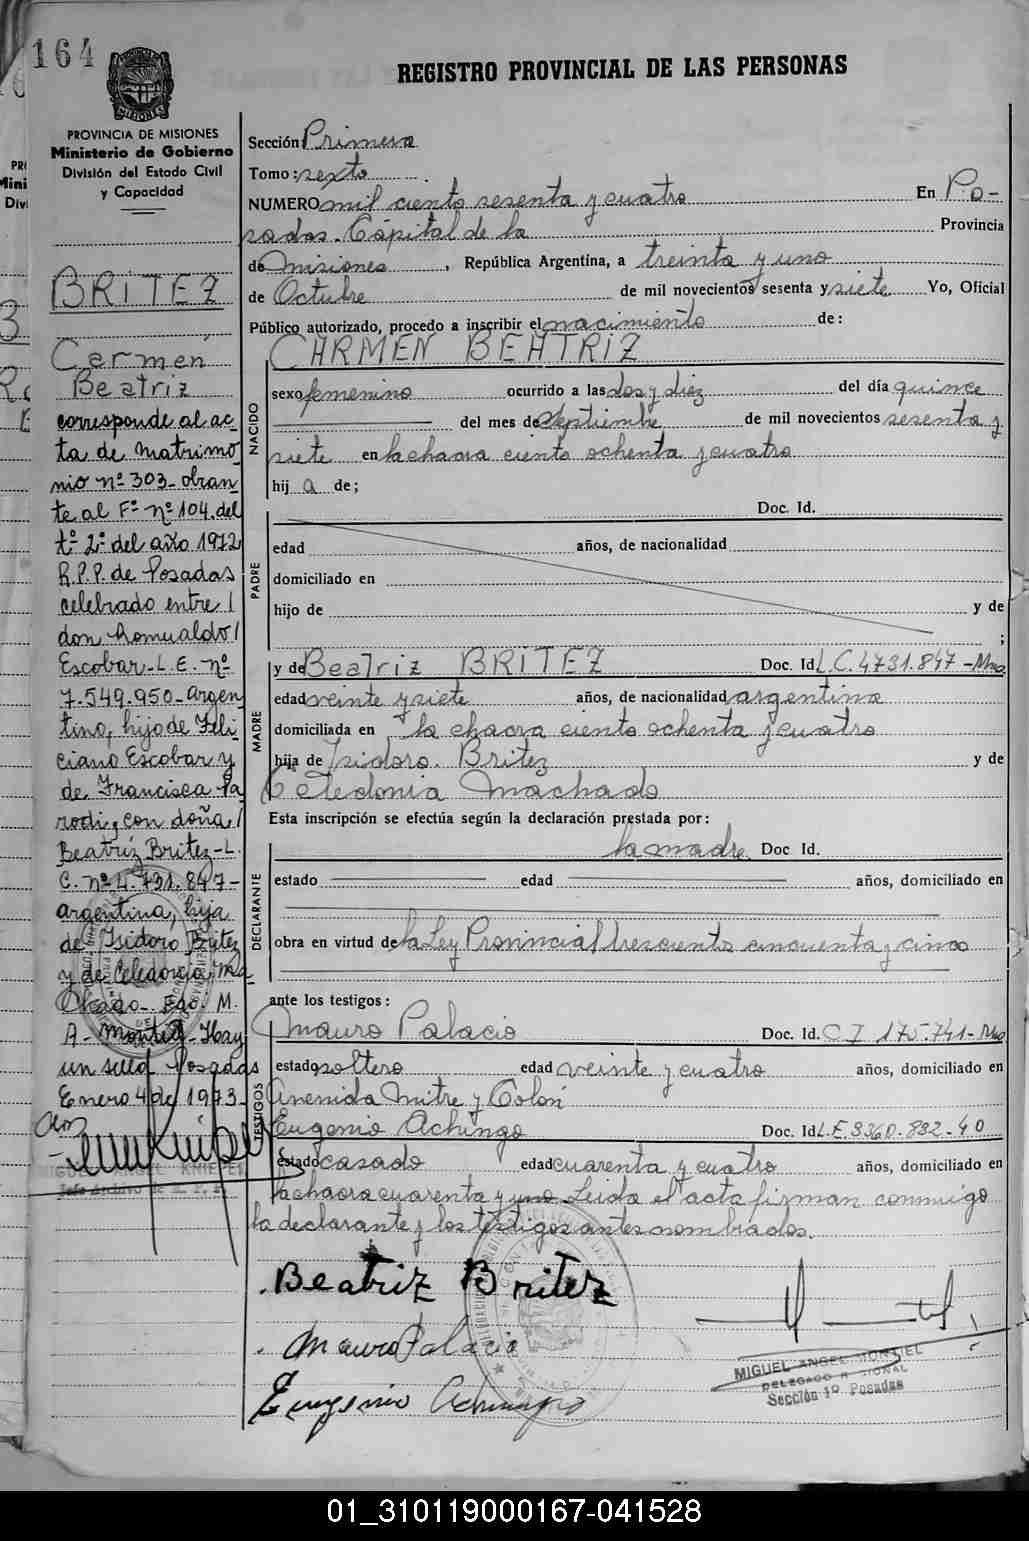 164
REGISTRO PROVINCIAL DE LAS PERSONAS
PROVINCIA DE MISIONES
Ministerio de Gobierno
División del Estado Civil
y Capacidad
BRITEZ
Carmen
Beatriz
corresponde al ac
ta de matrimo
nio nº 303 - obran
te al Fº nº 104. del
tº 2º del año 1972
R.P.P. de Posadas
celebrado entre /
don Romualdo /
Escobar - L.E. nº
7.549.950 - Argen
tino, hijo de Feli
ciano Escobar y
de Francisca Pa
rodi, con doña /
Beatriz Britez - L.
C. nº 4.731.847 -
argentina, hija
de Isidoro Britez
y de Celedonia Ma
chado - Fdo. M.
A - Montiel - Hay
un sello Posadas
Enero 4 de 1973 -
MIGUEL ANGEL KNIEPEL
Jefe Archivo de R. P. P.
Sección Primera
Tomo: sexto
NUMERO mil ciento sesenta y cuatro En Po-
sadas. Cápital de la Provincia
de Misiones, República Argentina, a treinta y uno
de Octubre de mil novecientos sesenta y siete Yo, Oficial
Público autorizado, procedo a inscribir el nacimiento de:
CARMEN BEATRIZ
NACIDO
sexo femenino ocurrido a las dos y diez del día quince
del mes de Septiembre de mil novecientos sesenta y
siete en la chacra ciento ochenta y cuatro
hij a de;
PADRE
Doc. Id.
edad años, de nacionalidad
domiciliado en
hijo de y de
;
MADRE
y de Beatriz BRITEZ Doc. Id L.C. 4731.847 - Mnes
edad veinte y siete años, de nacionalidad argentina
domiciliada en la chacra ciento ochenta y cuatro
hija de Isidoro. Britez y de
Celedonia Machado
Esta inscripción se efectúa según la declaración prestada por:
DECLARANTE
la madre Doc. Id.
estado edad años, domiciliado en
obra en virtud de la Ley Provincial trescientos cincuenta y cinco
ante los testigos:
TESTIGOS
Mauro Palacio Doc. Id. C I 175.741 - Mnes
estado soltero edad veinte y cuatro años, domiciliado en
Avenida Mitre y Colón
Eugenio Achinga Doc. Id L.E. 3360.832 - 40
estado casado edad cuarenta y cuatro años, domiciliado en
la chacra cuarenta y uno. Leida el acta firman conmigo
la declarante y los testigos antes nombrados.
Beatriz Britez
Mauro Palacio
Eugenio Achinga
MIGUEL ANGEL MONTIEL
DELEGADO
Sección 1º Posadas
01_310119000167-041528